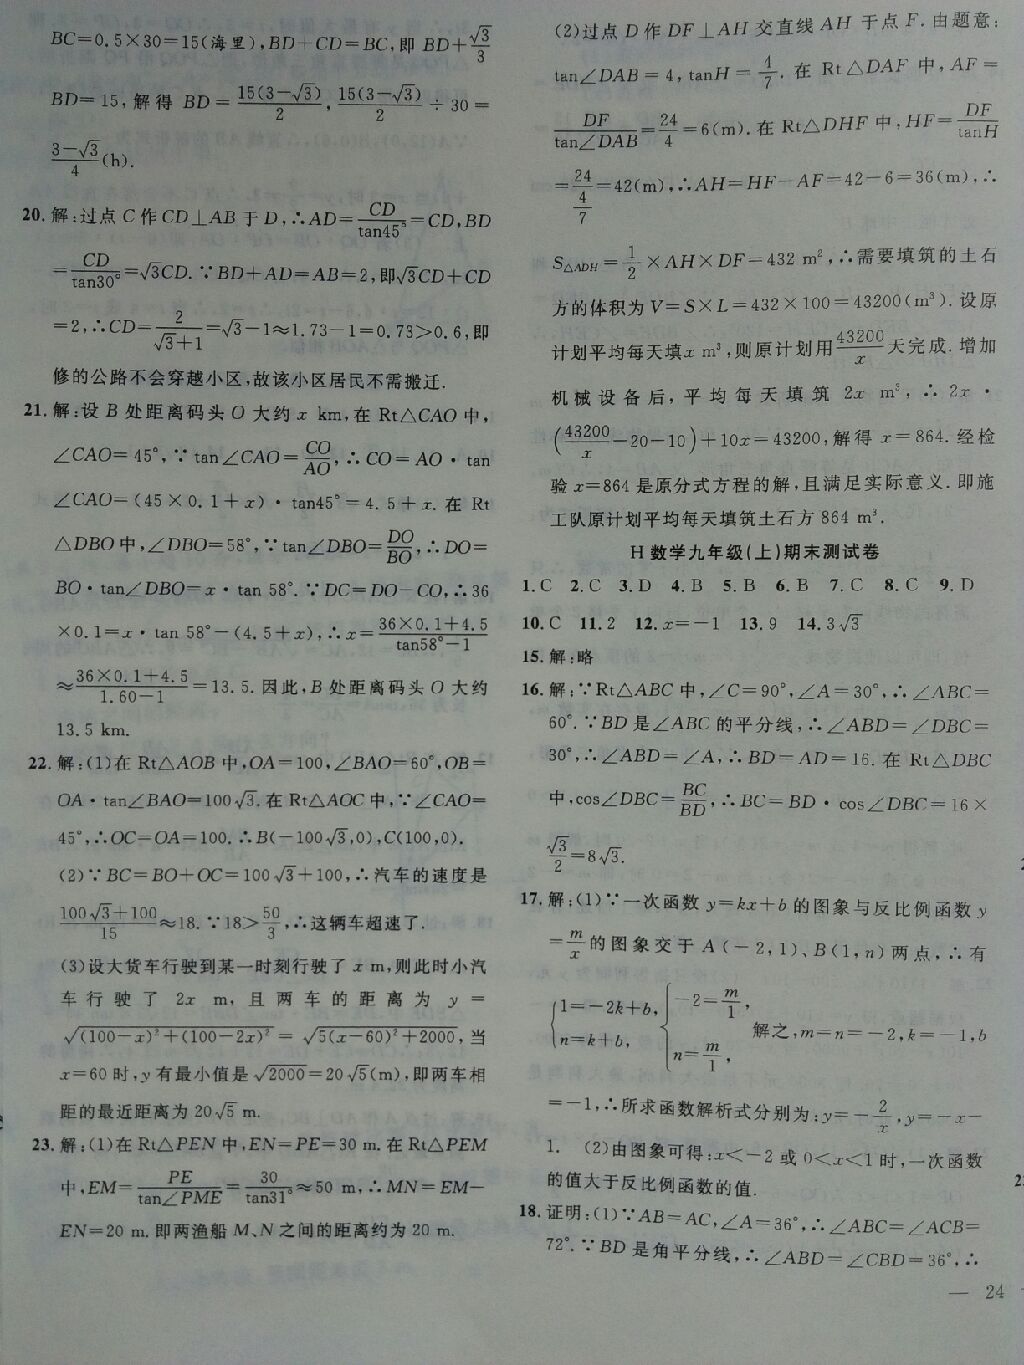 BC=0.5×30=15(海里),BD+CD=BC,即 BD+√3/3
BD=15,解得 BD=15(3-√3)/2,15(3-√3)/2÷30=
3-√3/4(h).
20.解:过点 C 作 CD⊥AB 于 D,∴AD=CD/tan45°=CD,BD
=CD/tan30°=√3CD.∵BD+AD=AB=2,即√3CD+CD
=2,∴CD=2/√3+1=√3-1≈1.73-1=0.73>0.6,即
修的公路不会穿越小区,故该小区居民不需搬迁.
21.解:设 B 处距离码头 O 大约 x km,在 Rt△CAO 中,
∠CAO=45°,∵tan∠CAO=CO/AO,∴CO=AO·tan
∠CAO=(45×0.1+x)·tan45°=4.5+x.在 Rt
△DBO 中,∠DBO=58°,∵tan∠DBO=DO/BO,∴DO=
BO·tan∠DBO=x·tan 58°.∵DC=DO-CO,∴36
×0.1=x·tan 58°-(4.5+x),∴x=36×0.1+4.5/tan58°-1
≈36×0.1+4.5/1.60-1=13.5.因此,B 处距离码头 O 大约
13.5 km.
22.解:(1)在 Rt△AOB 中,OA=100,∠BAO=60°,OB=
OA·tan∠BAO=100√3.在 Rt△AOC 中,∵∠CAO=
45°,∴OC=OA=100.∴B(-100√3,0),C(100,0).
(2)∵BC=BO+OC=100√3+100,∴汽车的速度是
100√3+100/15≈18.∵18>50/3,∴这辆车超速了.
(3)设大货车行驶到某一时刻行驶了 x m,则此时小汽
车行驶了 2x m,且两车的距离为 y=
√(100-x)²+(100-2x)²=√5(x-60)²+2000,当
x=60 时,y 有最小值是√2000=20√5(m),即两车相
距的最近距离为 20√5 m.
23.解:(1)在 Rt△PEN 中,EN=PE=30 m.在 Rt△PEM
中,EM=PE/tan∠PME=30/tan31°≈50 m,∴MN=EM-
EN=20 m.即两渔船 M、N 之间的距离约为 20 m.
(2)过点 D 作 DF⊥AH 交直线 AH 于点 F.由题意:
tan∠DAB=4,tanH=4/7.在 Rt△DAF 中,AF=
DF/tan∠DAB=24/4=6(m).在 Rt△DHF 中,HF=DF/tanH
=24/4/7=42(m),∴AH=HF-AF=42-6=36(m),∴
S△ADH=1/2×AH×DF=432 m²,∴需要填筑的土石
方的体积为 V=S×L=432×100=43200(m³).设原
计划平均每天填x m³,则原计划用43200/x天完成.增加
机械设备后,平均每天填筑 2x m³,∴2x·
(43200/x-20-10)+10x=43200,解得 x=864.经检
验 x=864 是原分式方程的解,且满足实际意义.即施
工队原计划平均每天填筑土石方 864 m³.
H 数学九年级(上)期末测试卷
1.C 2.C 3.D 4.B 5.B 6.B 7.C 8.C 9.D
10.C 11.2 12.x=-1 13.9 14.3√3
15.解:略
16.解:∵Rt△ABC 中,∠C=90°,∠A=30°,∴∠ABC=
60°.∵BD 是∠ABC 的平分线,∴∠ABD=∠DBC=
30°,∴∠ABD=∠A,∴BD=AD=16.在 Rt△DBC
中,cos∠DBC=BC/BD,∴BC=BD·cos∠DBC=16×
√3/2=8√3.
17.解:(1)∵一次函数 y=kx+b 的图象与反比例函数 y
=m/x的图象交于 A(-2,1)、B(1,n)两点,∴有
{1=-2k+b, n=k+b, {-2=m/1, n=m/1, 解之,m=n=-2,k=-1,b
=-1,∴所求函数解析式分别为:y=-2/x,y=-x-
1. (2)由图象可得:x<-2 或 0<x<1 时,一次函数
的值大于反比例函数的值.
18.证明:(1)∵AB=AC,∠A=36°,∴∠ABC=∠ACB=
72°.∵BD 是角平分线,∴∠ABD=∠CBD=36°,∴
— 24